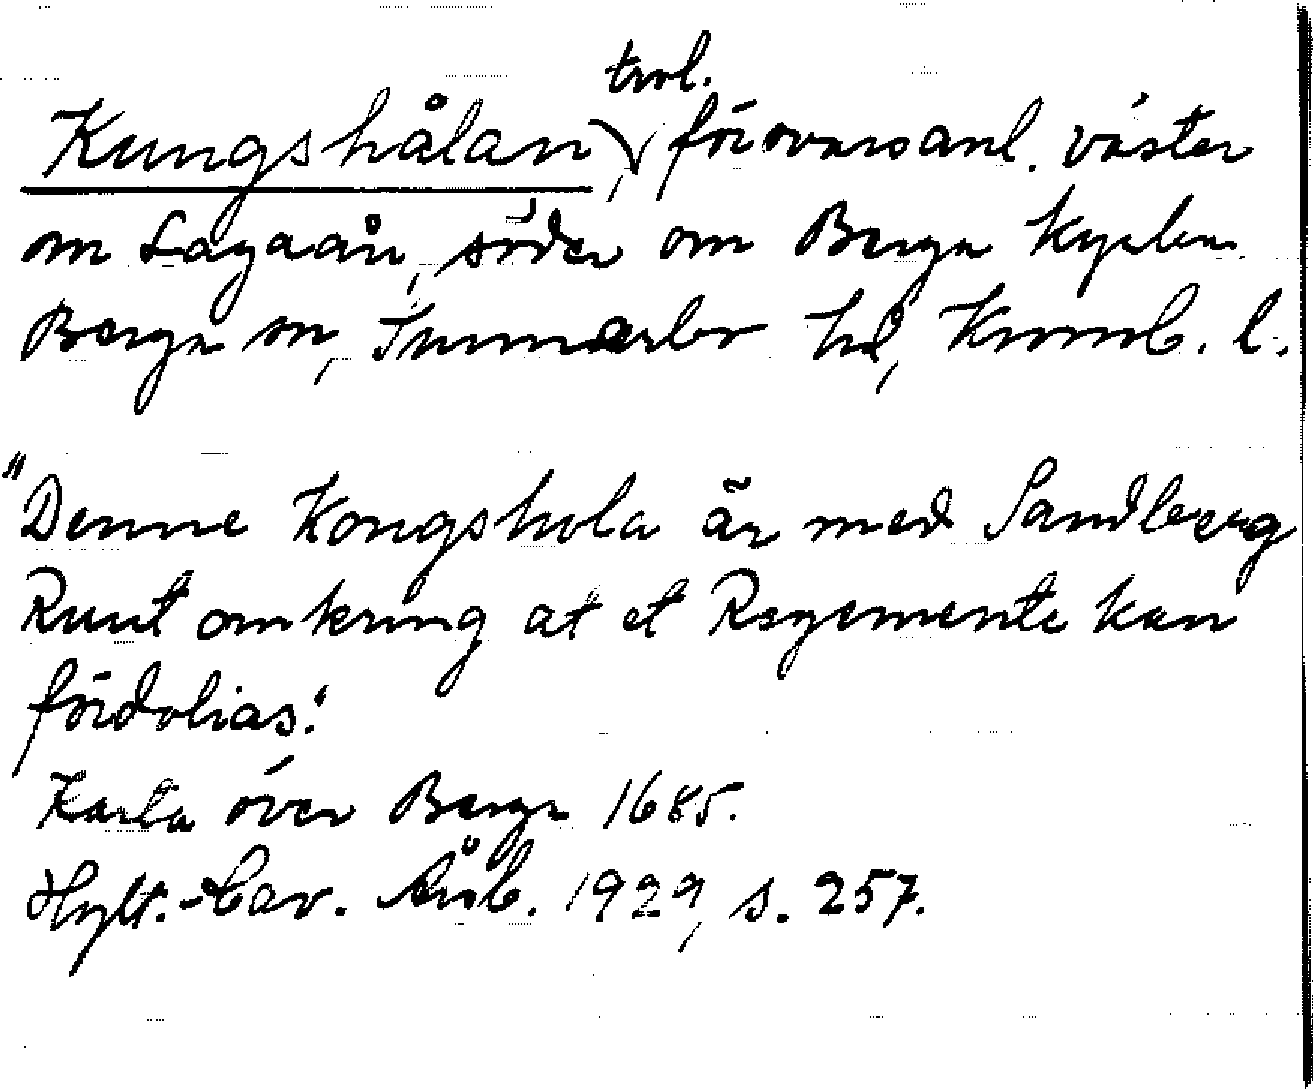 Kungshålan, trol. försvarsanl. väster
om Lagaån, söder om Berga kyrka.
Berga sn, Sunnerbo hd, Kronob. l.
"Denne Kongshola är med Sandberg
Runt omkring at et Regemente kan
fördolias."
Karta över Berga 1685.
Hylt.-Cav. Årsb. 1929, s. 257.